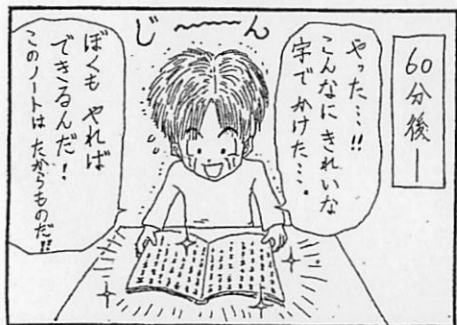 60分後ー
やった…!!
こんなに きれいな
字で かけた…。
じ〜〜ん
ぼくも やれば
できるんだ!
このノートは たからものだ!!